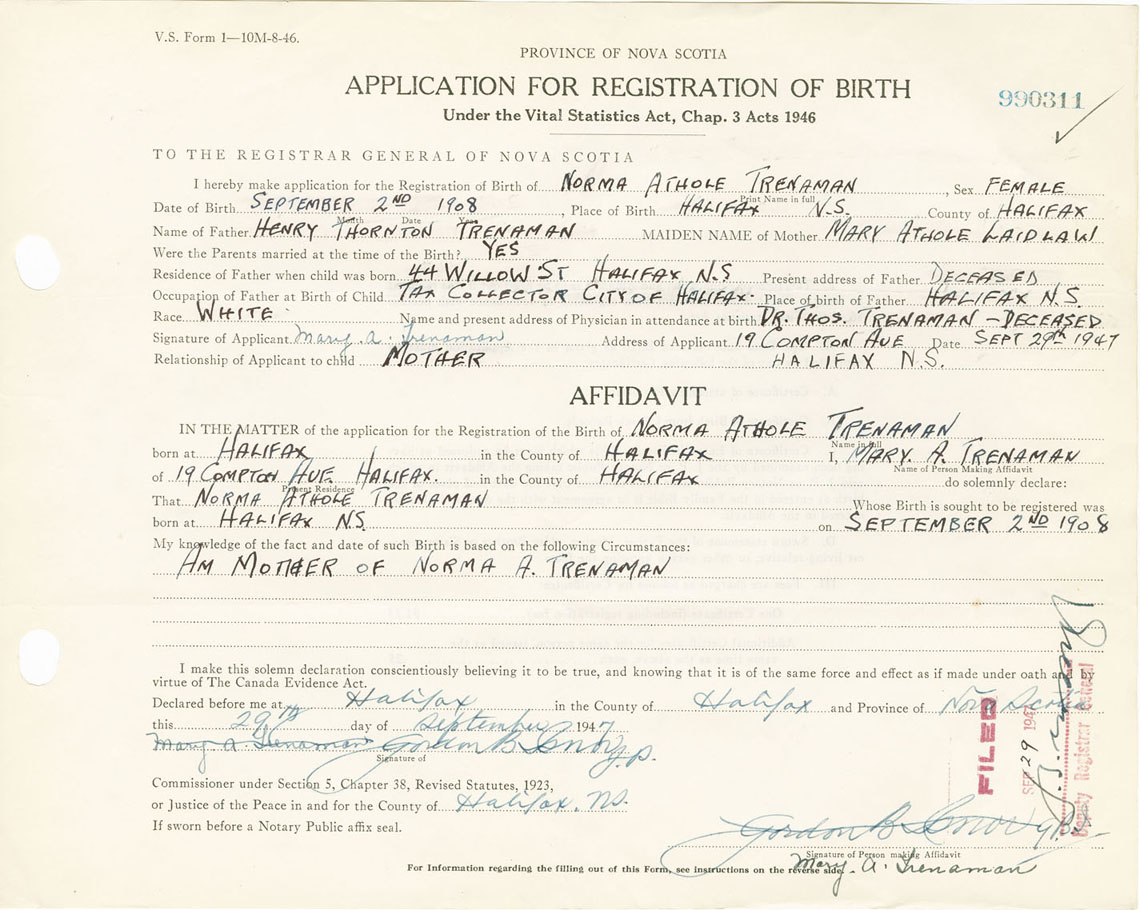 V.S. Form 1—10M-8-46.
PROVINCE OF NOVA SCOTIA
APPLICATION FOR REGISTRATION OF BIRTH
990311
Under the Vital Statistics Act, Chap. 3 Acts 1946
TO THE REGISTRAR GENERAL OF NOVA SCOTIA
I hereby make application for the Registration of Birth of NORMA ATHOLE TRENAMAN, Sex FEMALE
Print Name in full
Date of Birth SEPTEMBER 2ND 1908, Place of Birth HALIFAX N.S. County of HALIFAX
Month Date Year
Name of Father HENRY THORNTON TRENAMAN MAIDEN NAME of Mother MARY ATHOLE LAIDLAW
Were the Parents married at the time of the Birth? YES
Residence of Father when child was born 44 WILLOW ST HALIFAX N.S Present address of Father DECEASED
Occupation of Father at Birth of Child TAX COLLECTOR CITY OF HALIFAX. Place of birth of Father HALIFAX N.S.
Race WHITE Name and present address of Physician in attendance at birth DR. THOS. TRENAMAN — DECEASED
Signature of Applicant Mary A. Trenaman Address of Applicant 19 COMPTON AVE Date SEPT 29th 1947
Relationship of Applicant to child MOTHER HALIFAX N.S.
AFFIDAVIT
IN THE MATTER of the application for the Registration of the Birth of NORMA ATHOLE TRENAMAN
Name in full
born at HALIFAX in the County of HALIFAX I, MARY. A. TRENAMAN
Name of Person Making Affidavit
of 19 COMPTON AVE. HALIFAX. in the County of HALIFAX do solemnly declare:
Present Residence
That NORMA ATHOLE TRENAMAN Whose Birth is sought to be registered was
born at HALIFAX N.S. on SEPTEMBER 2ND 1908
My knowledge of the fact and date of such Birth is based on the following Circumstances:
AM MOTHER OF NORMA A. TRENAMAN
I make this solemn declaration conscientiously believing it to be true, and knowing that it is of the same force and effect as if made under oath and by
virtue of The Canada Evidence Act.
Declared before me at Halifax in the County of Halifax and Province of Nova Scotia
this 29th day of September 1947
Mary A. Trenaman Gordon B J.P.
Signature of
Commissioner under Section 5, Chapter 38, Revised Statutes, 1923,
or Justice of the Peace in and for the County of Halifax, N.S.
If sworn before a Notary Public affix seal.
FILED
SEP 29 1947
Deputy Registrar General
Gordon B
Signature of Person making Affidavit
Mary. A. Trenaman
For Information regarding the filling out of this Form, see instructions on the reverse side.